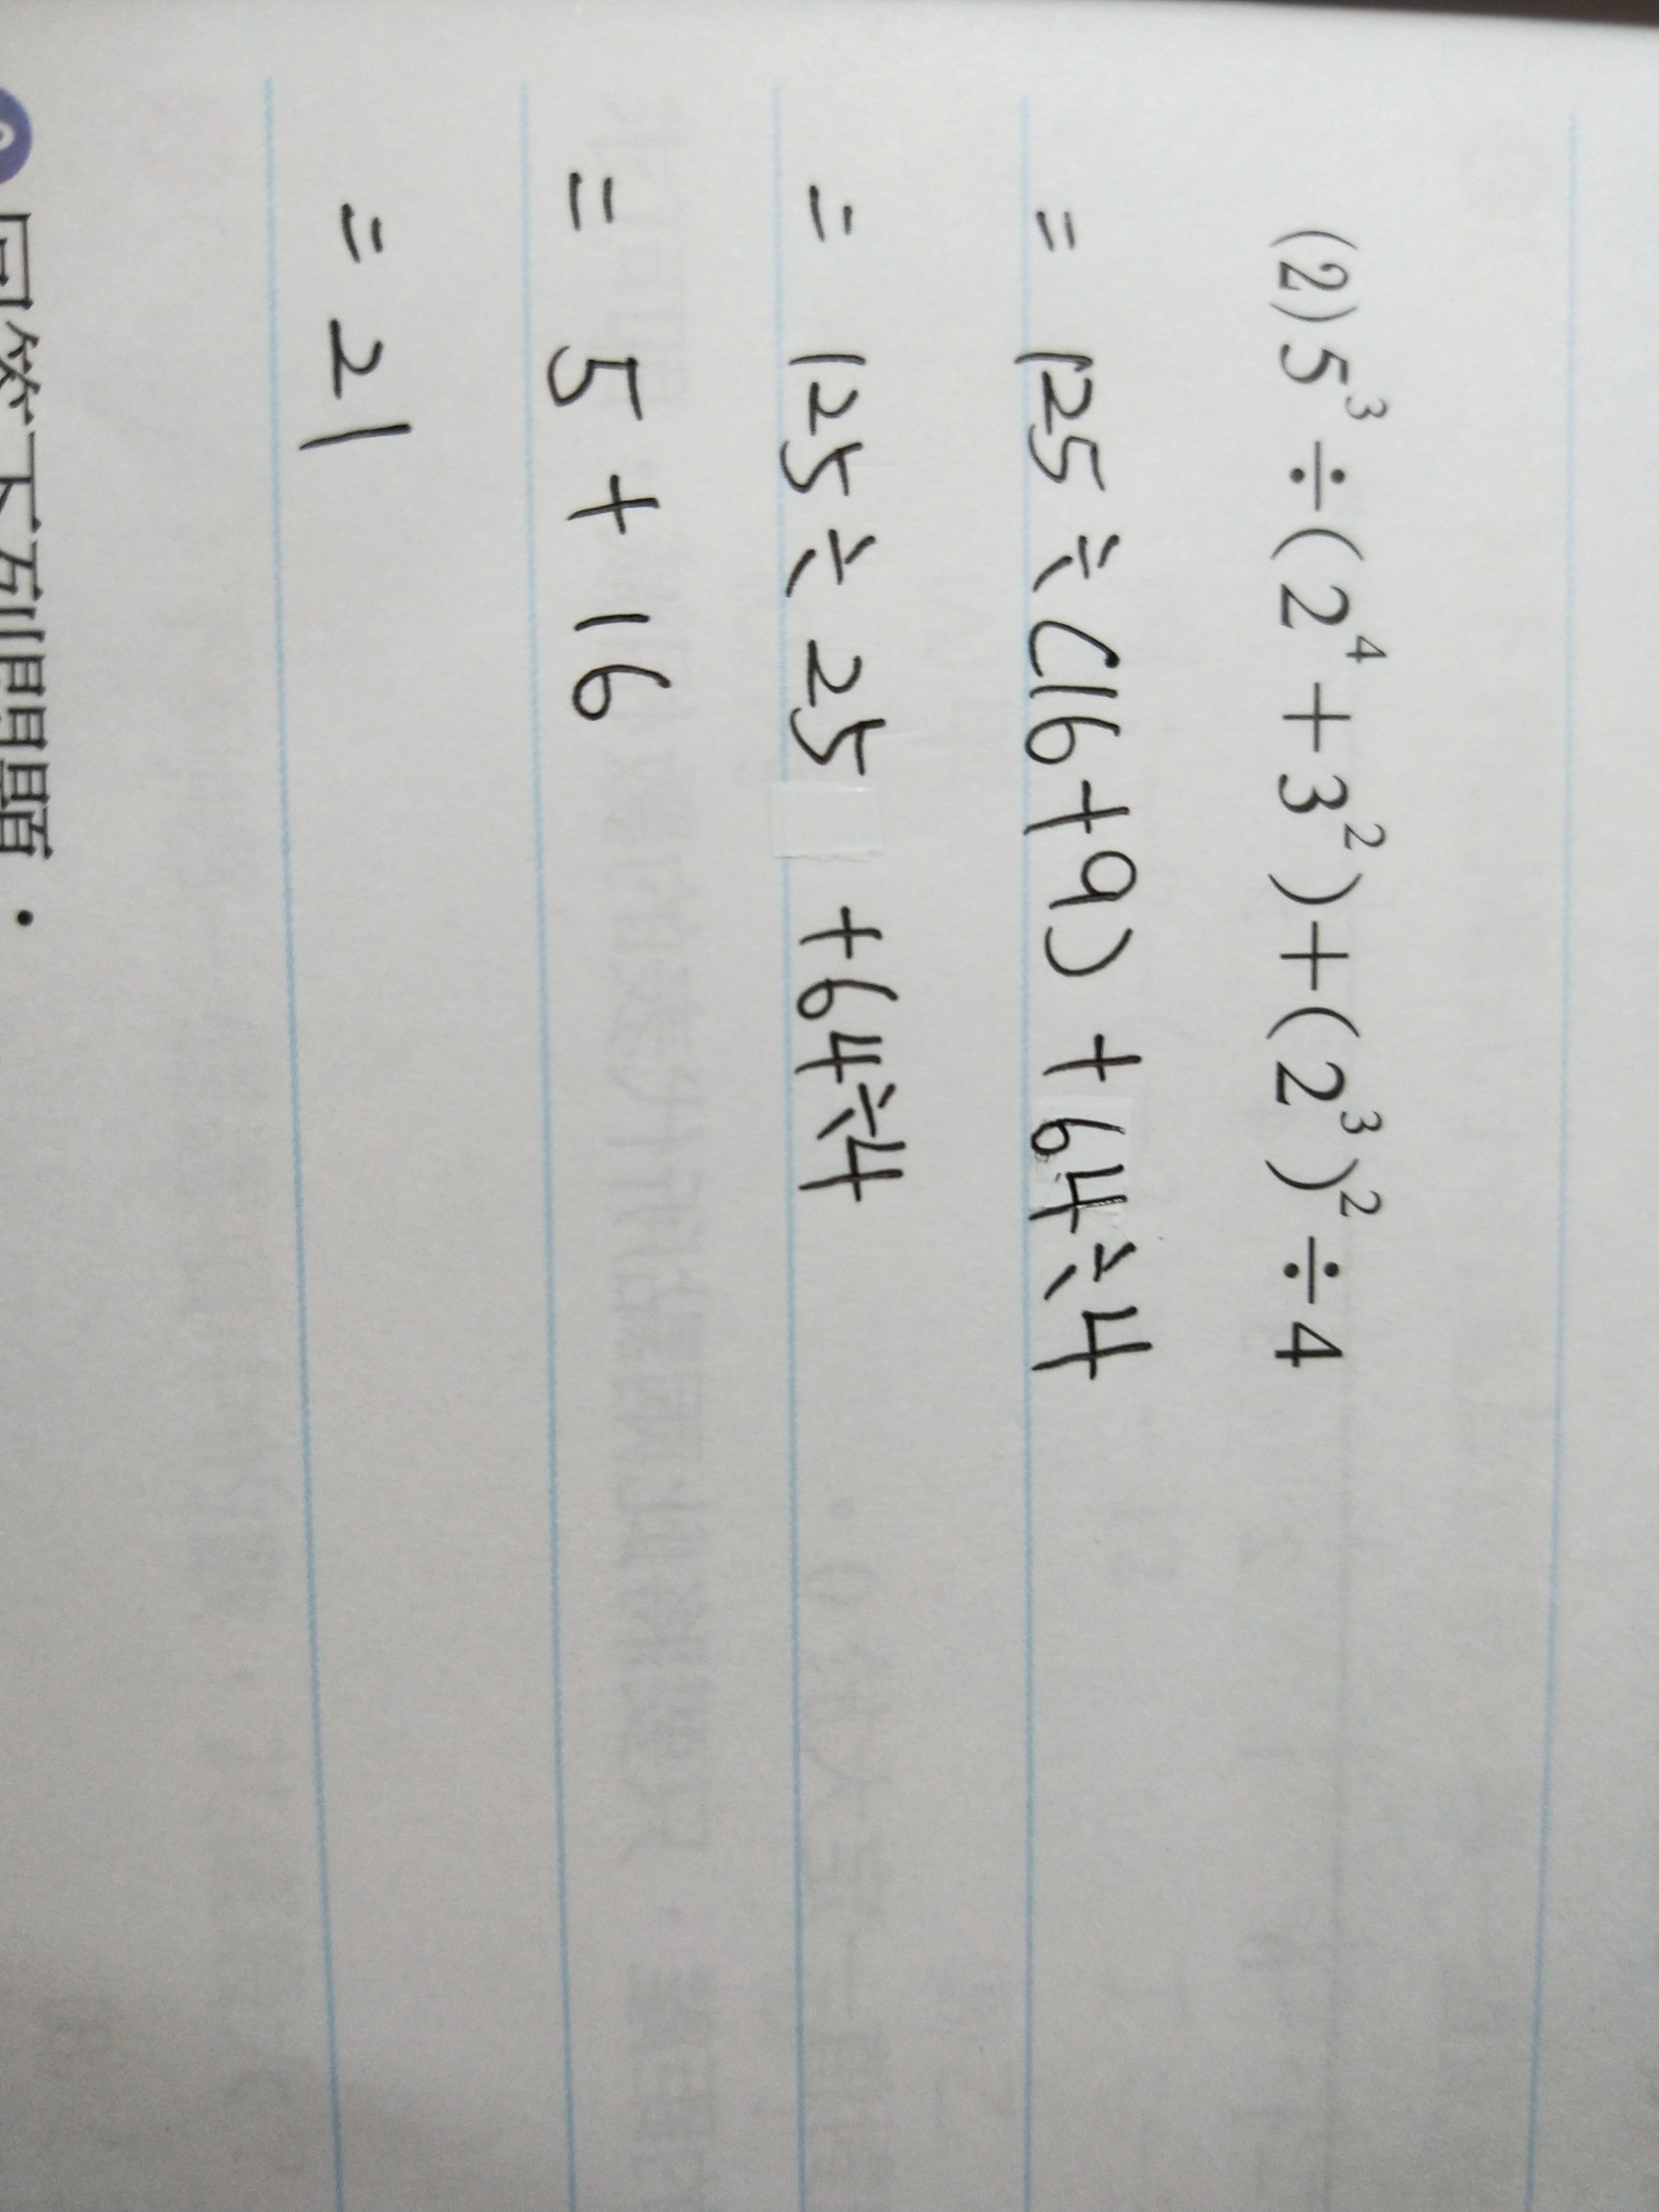 (2) 5³÷(2⁴+3²)+(2³)²÷4
= 125÷(16+9)+64÷4
= 125÷25 +64÷4
= 5+16
= 21
回答下列問題：